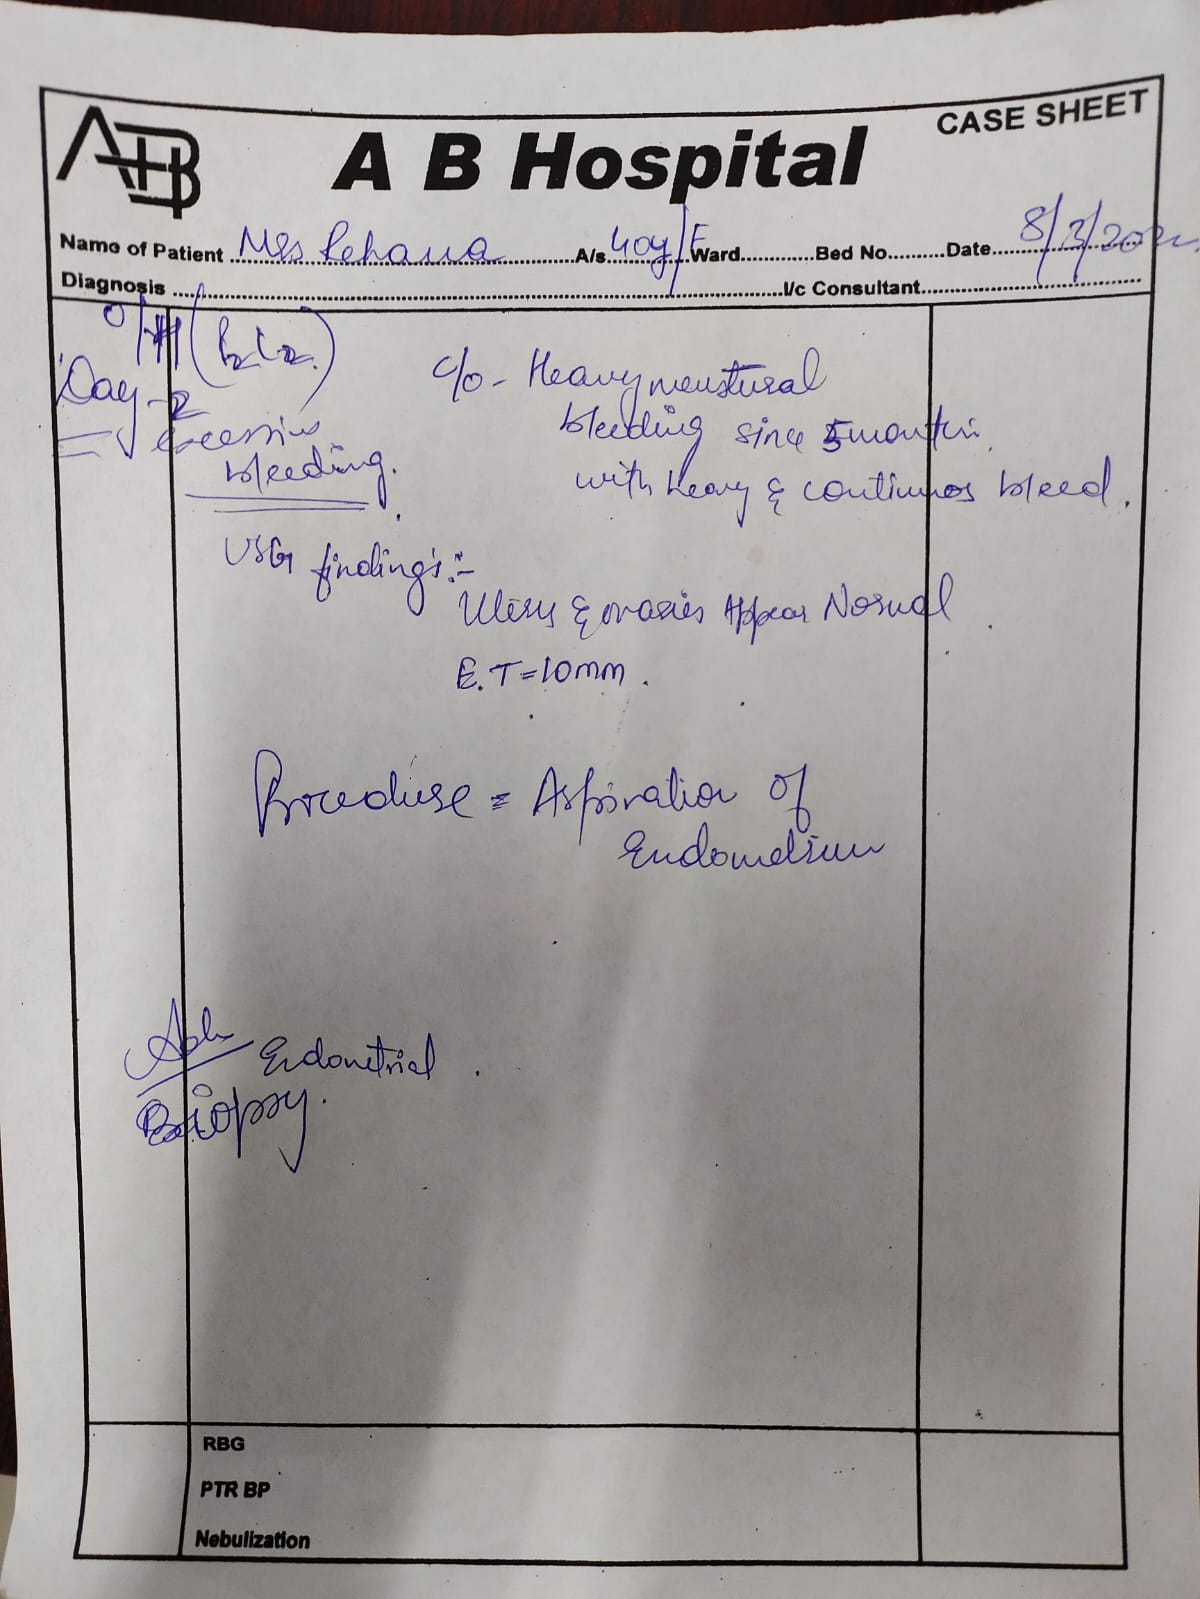 AHB
A B Hospital
CASE SHEET
Name of Patient Mrs Rehana A/s 40y/F Ward Bed No. Date 8/2/202
Diagnosis I/c Consultant
Day-2
excessive
bleeding.
c/o - Heavy menstural
bleeding since 5 month
with heavy & continuos bleed.
USG findings:-
Uterus & ovaries Appear Normal
E.T=10mm.
Procedure = Aspiration of
Endometrium
Adv Endometrial
Biopsy.
RBG
PTR BP
Nebulization